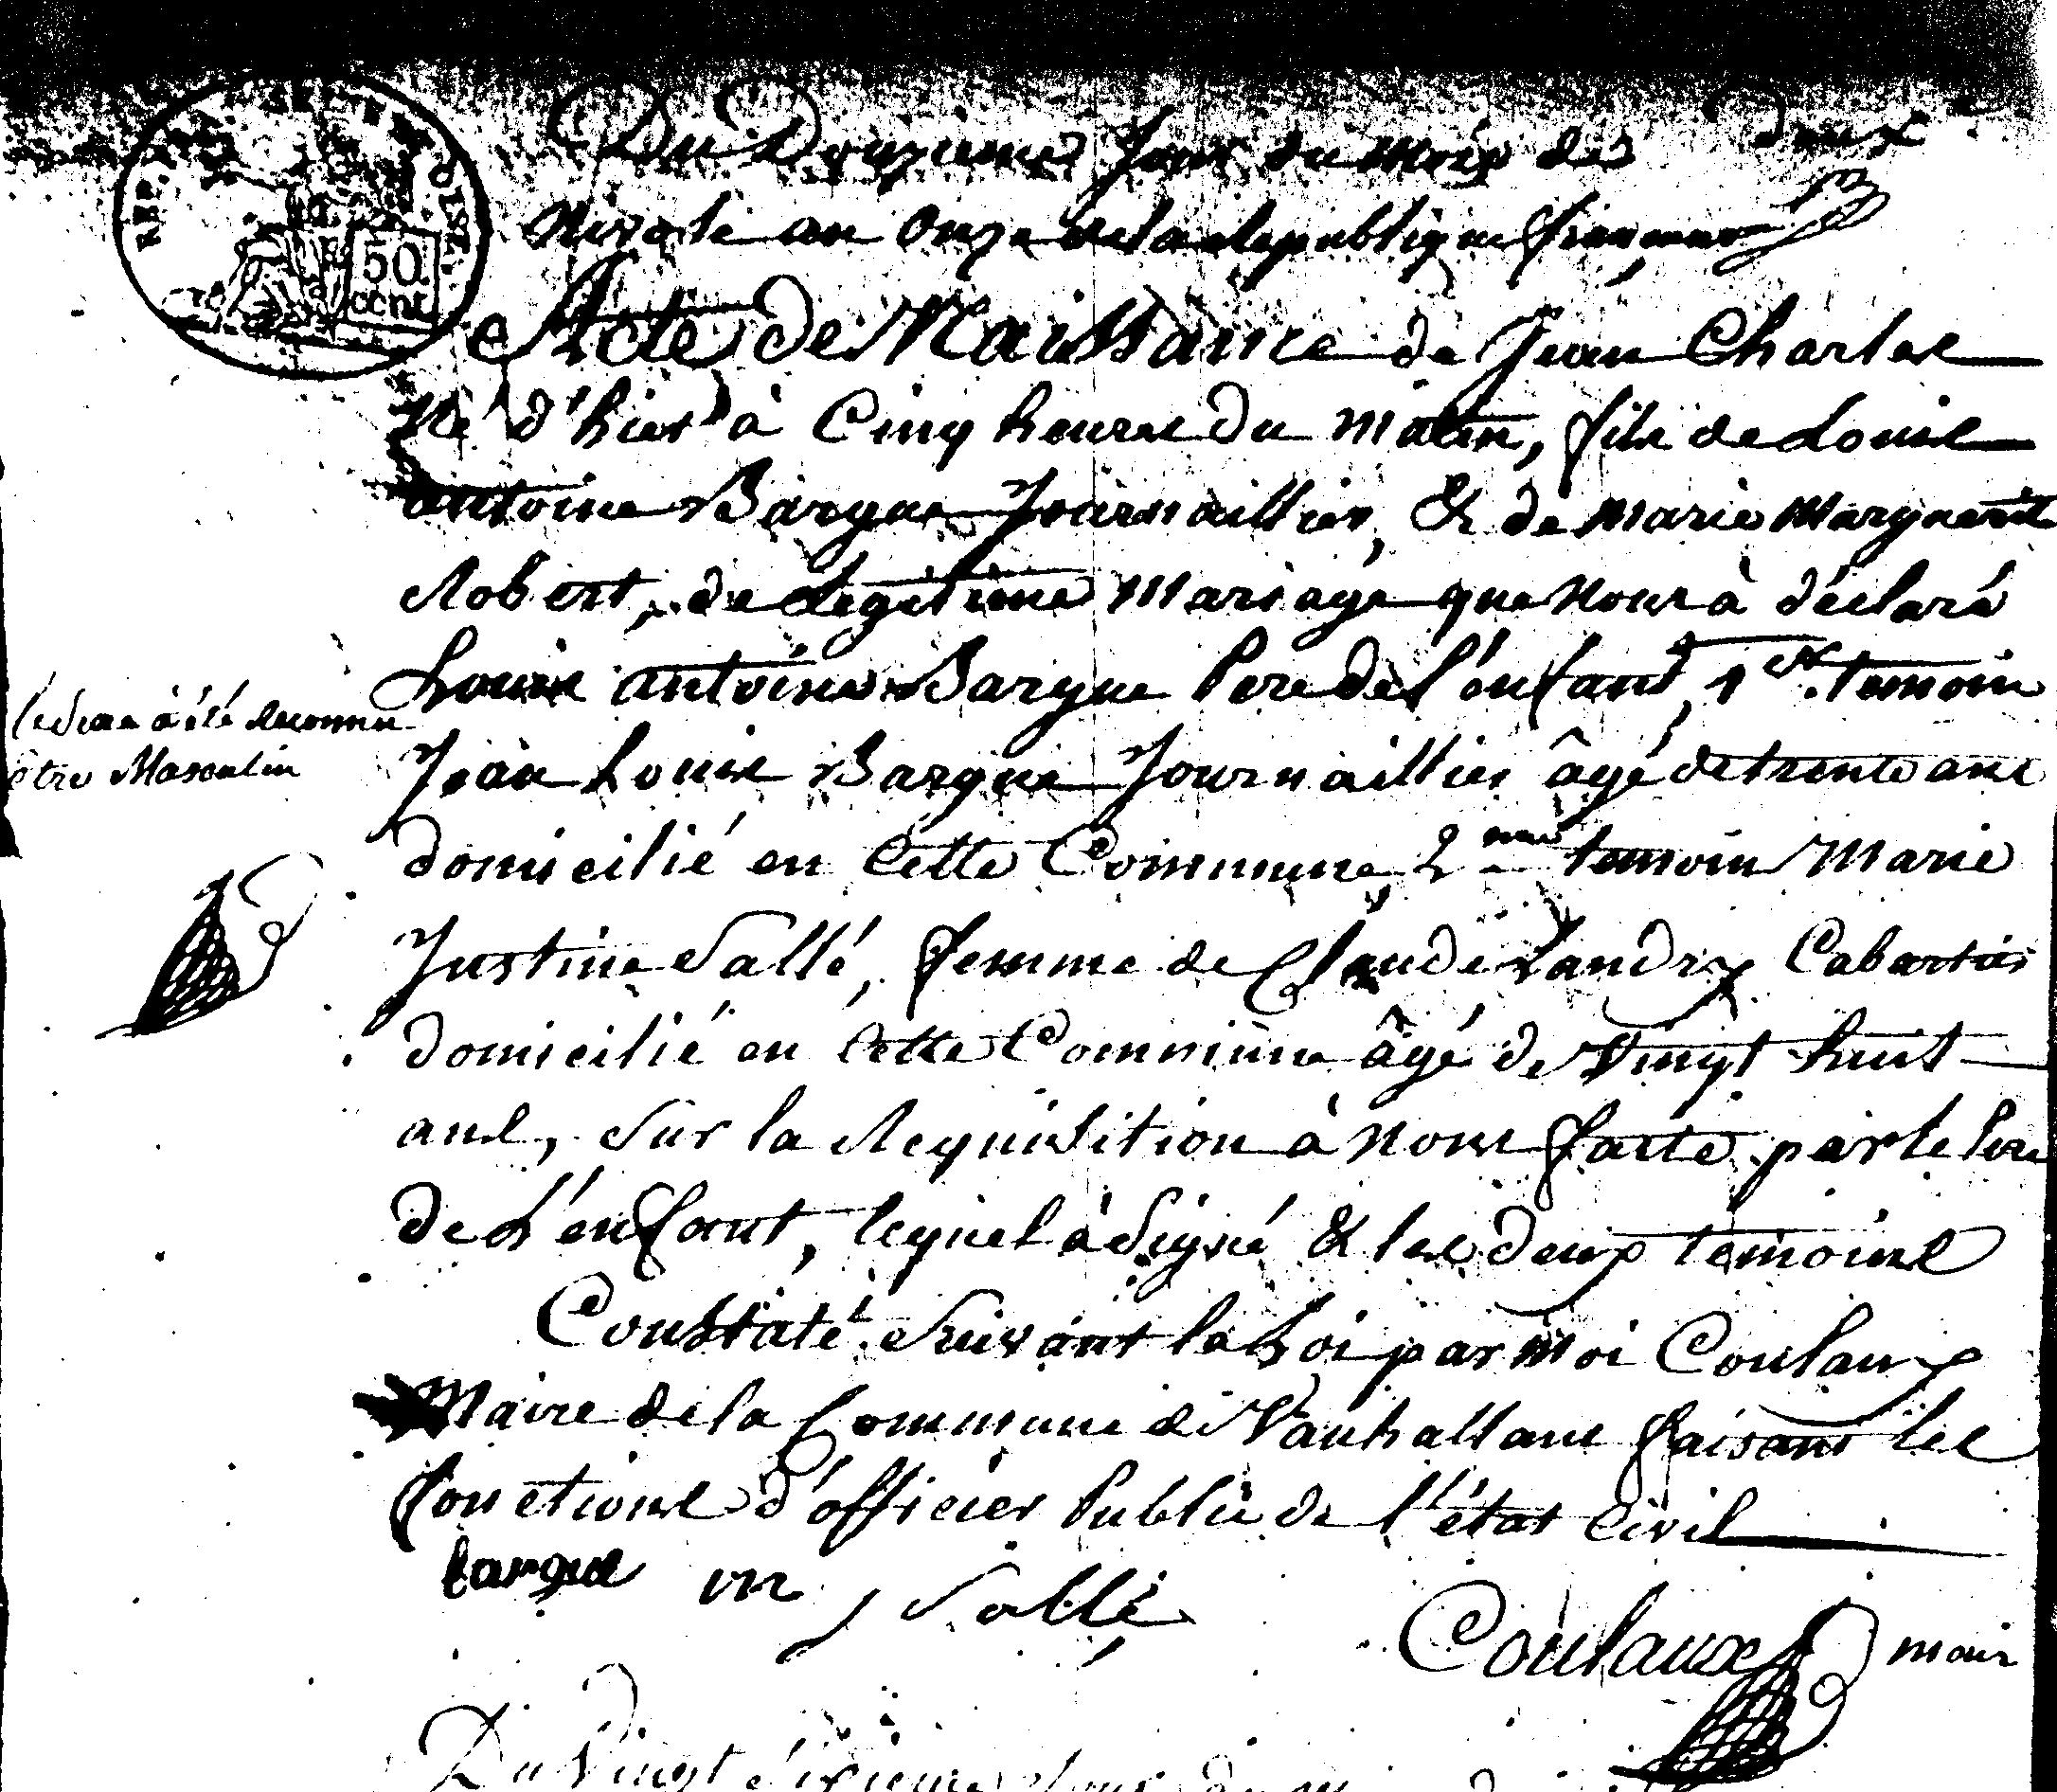 deux
Du Douzieme Jour du mois de
Nivose an Onze de la Republique française
REP.
50
cent
Acte de Naissance de Jean Charles
Né d'hier à Cinq heures du matin, fils de Louis
antoine Bargue Journaillier, & de marie Marguerite
Robert, de Legitime mariage que nous à déclaré
Louis antoine Bargue Pere de l'enfant, 1er. temoin
Jean Louis Bargue Journaillier âgé de trente ans
Le Sexe à été reconnu
être Masculin
domicilié en Cette Commune, 2me temoin Marie
Justine Sallé, femme de Claude Landry Cabartier
domicilié en Cette Commune âgé de Vingt huit
ans, Sur la Requisition à nous faite par le Pere
de L'enfant, lequel à Signé & les deux temoins
Constaté Suivant la Loi par moi Coulaux
Maire de la Commune de Vauhallant faisant les
fonctions d'officier Public de l'état Civil
bargue Sallé
Coulaux mair
Du Vingt Sixieme Jour du m